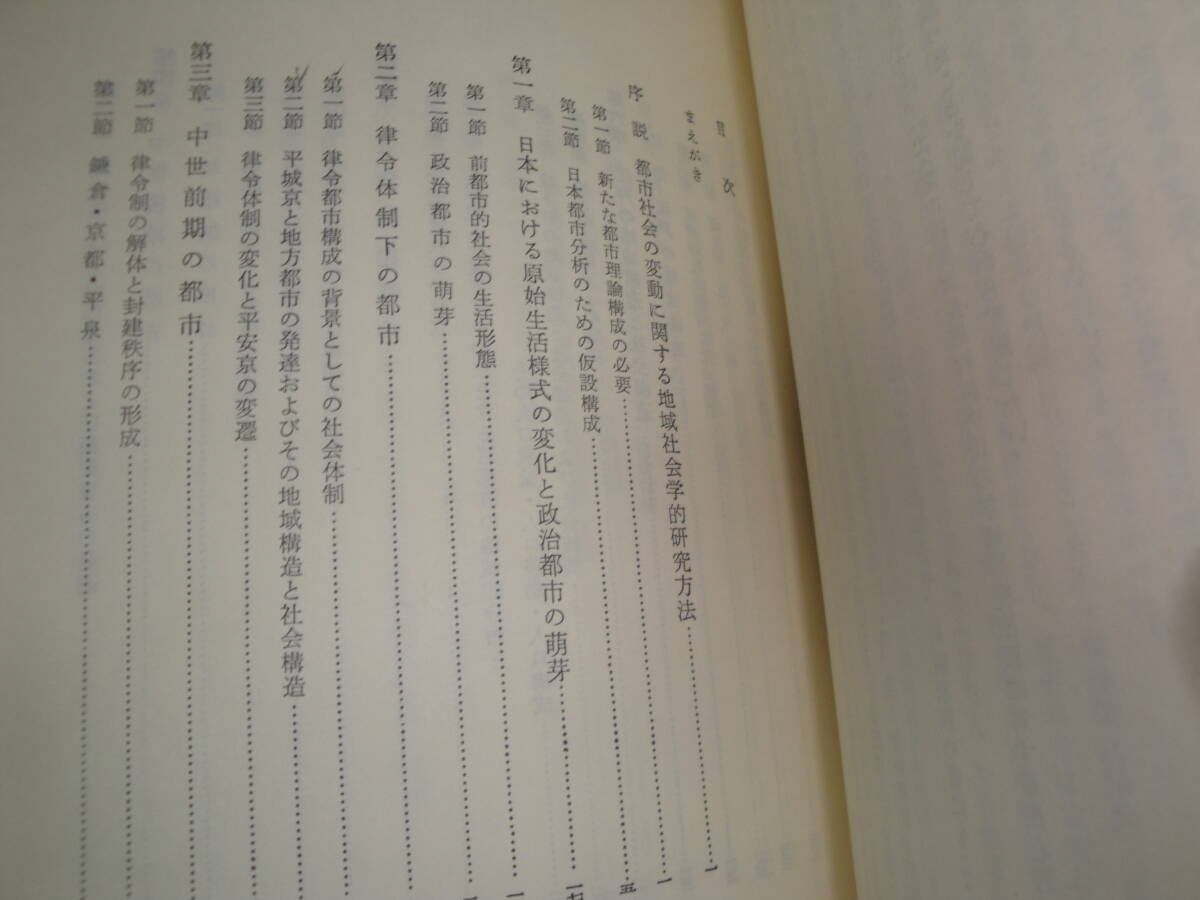 目次
まえがき
序説 都市社会の変動に関する地域社会学的研究方法……一
第一節 新たな都市理論構成の必要……一
第二節 日本都市分析のための仮設構成……五
第一章 日本における原始生活様式の変化と政治都市の萌芽……
第一節 前都市的社会の生活形態……
第二節 政治都市の萌芽……
第二章 律令体制下の都市……
第一節 律令都市構成の背景としての社会体制……
第二節 平城京と地方都市の発達およびその地域構造と社会構造……
第三節 律令体制の変化と平安京の変遷……
第三章 中世前期の都市……
第一節 律令制の解体と封建秩序の形成……
第二節 鎌倉・京都・平泉……